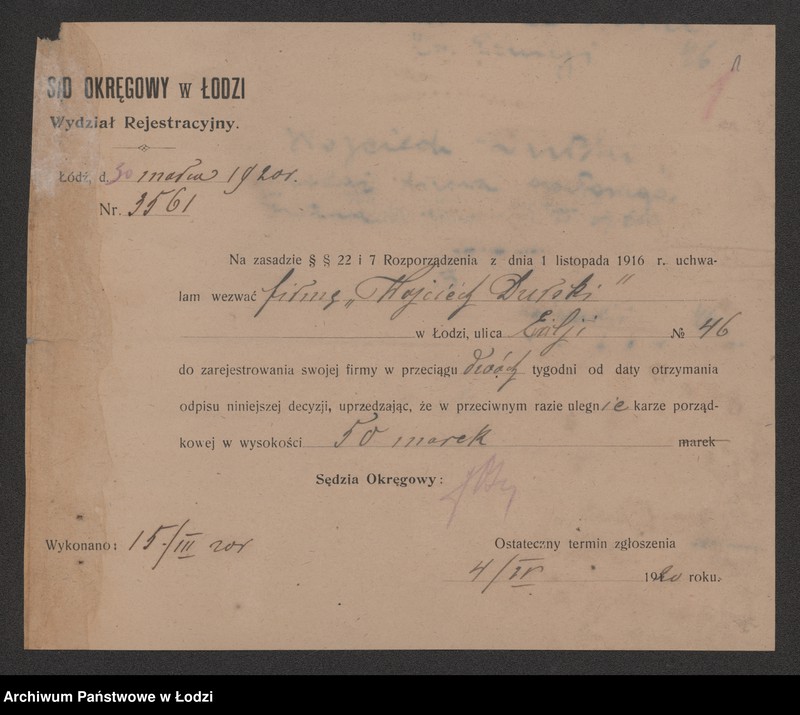 SĄD OKRĘGOWY W ŁODZI
Wydział Rejestracyjny.
Łódź, d. 30 marca 1920 r.
Nr. 3561
Na zasadzie § § 22 i 7 Rozporządzenia z dnia 1 listopada 1916 r. uchwa-
lam wezwać firmę „Wojciech Durski"
w Łodzi, ulica Emilji № 46
do zarejestrowania swojej firmy w przeciągu dwóch tygodni od daty otrzymania
odpisu niniejszej decyzji, uprzedzając, że w przeciwnym razie ulegnie karze porząd-
kowej w wysokości 50 marek marek
Sędzia Okręgowy:
Wykonano: 15/III 20r
Ostateczny termin zgłoszenia
4/IV 1920 roku.
Archiwum Państwowe w Łodzi